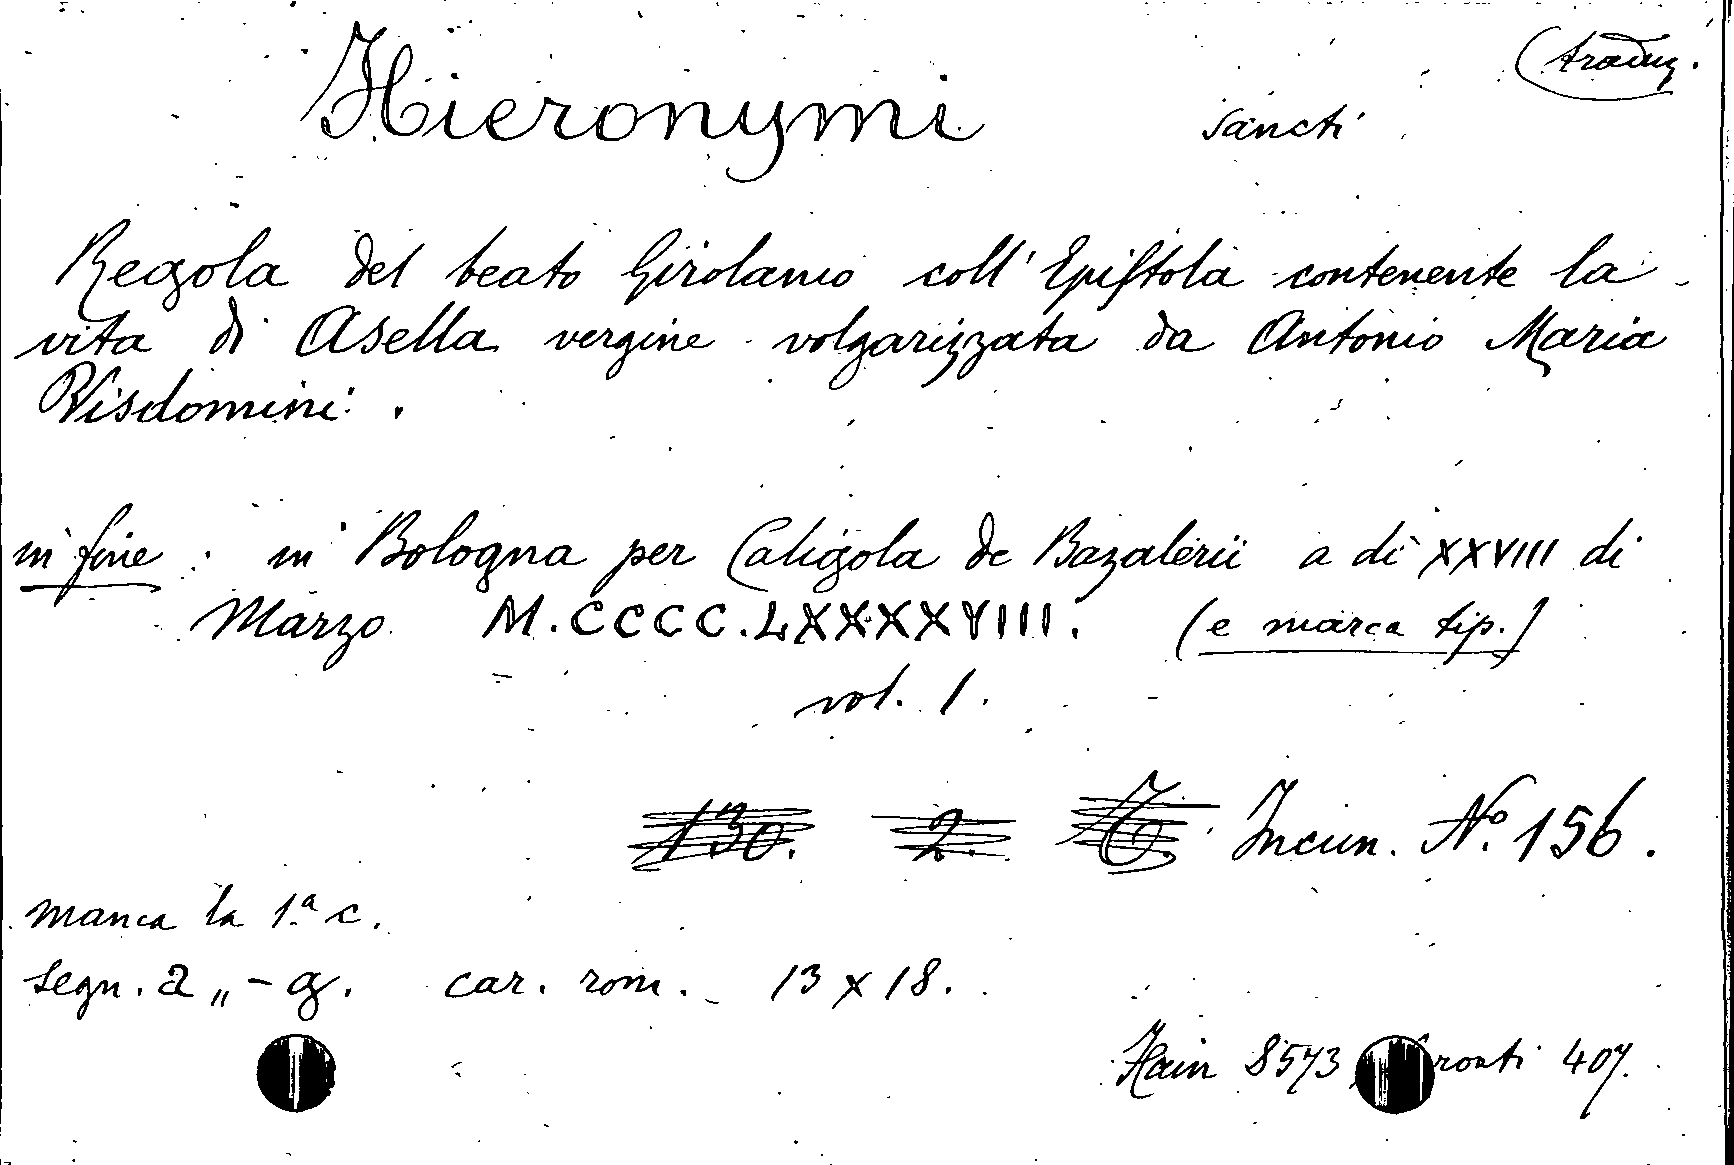 (traduz.
Hieronymi sancti
Regola del beato Girolamo coll' Epistola contenente la
vita di Asella vergine volgarizzata da Antonio Maria
Visdomini.
in fine : in Bologna per Caligola de Bazalerii a di XXVIII di
Marzo M.CCCC.LXXXXVIII. (e marca tip.)
vol. 1.
130. 2. Incun. Nº 156.
manca la 1.ª c.
segn. a „ - g. car. rom. 13 x 18.
Hain 8573 407.